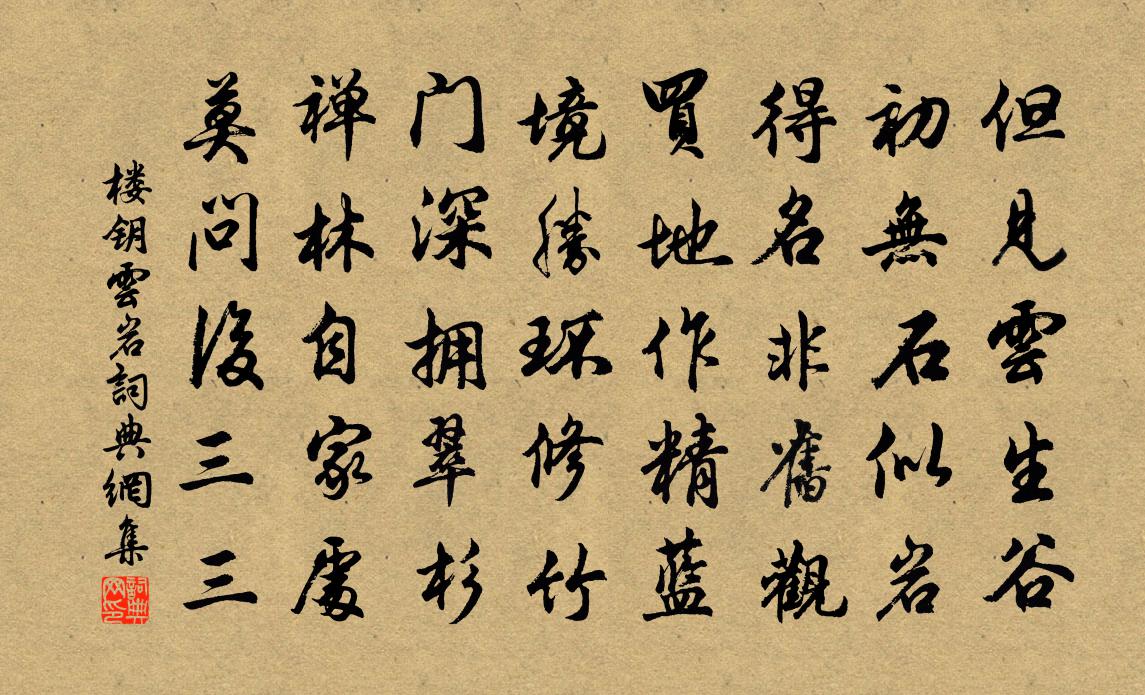 但見雲生谷
初無石似岩
得名非舊觀
買地作精藍
境勝环修竹
门深拥翠杉
禅林自家處
莫問後三三
楼钥雲岩詞典網集
詞典网印